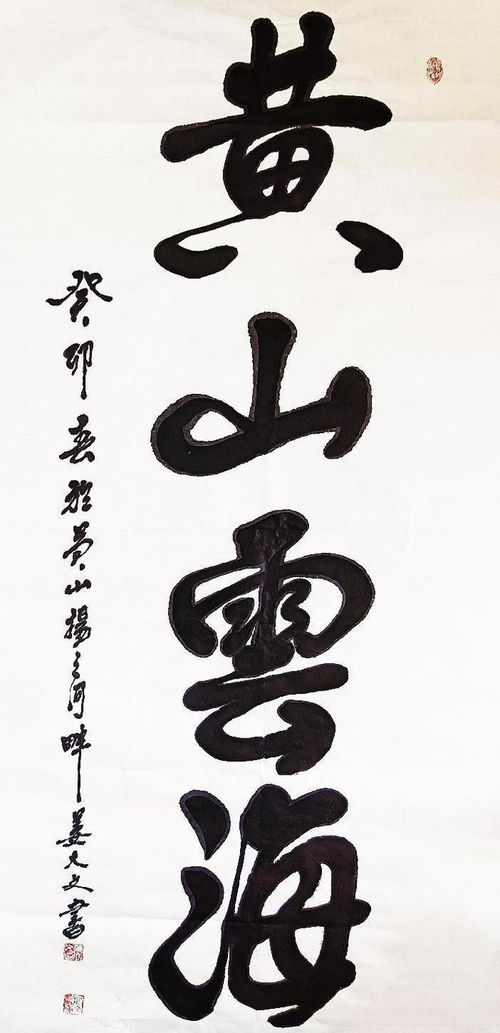 黄山雲海
癸卯春於黄山揚之河畔姜大文書